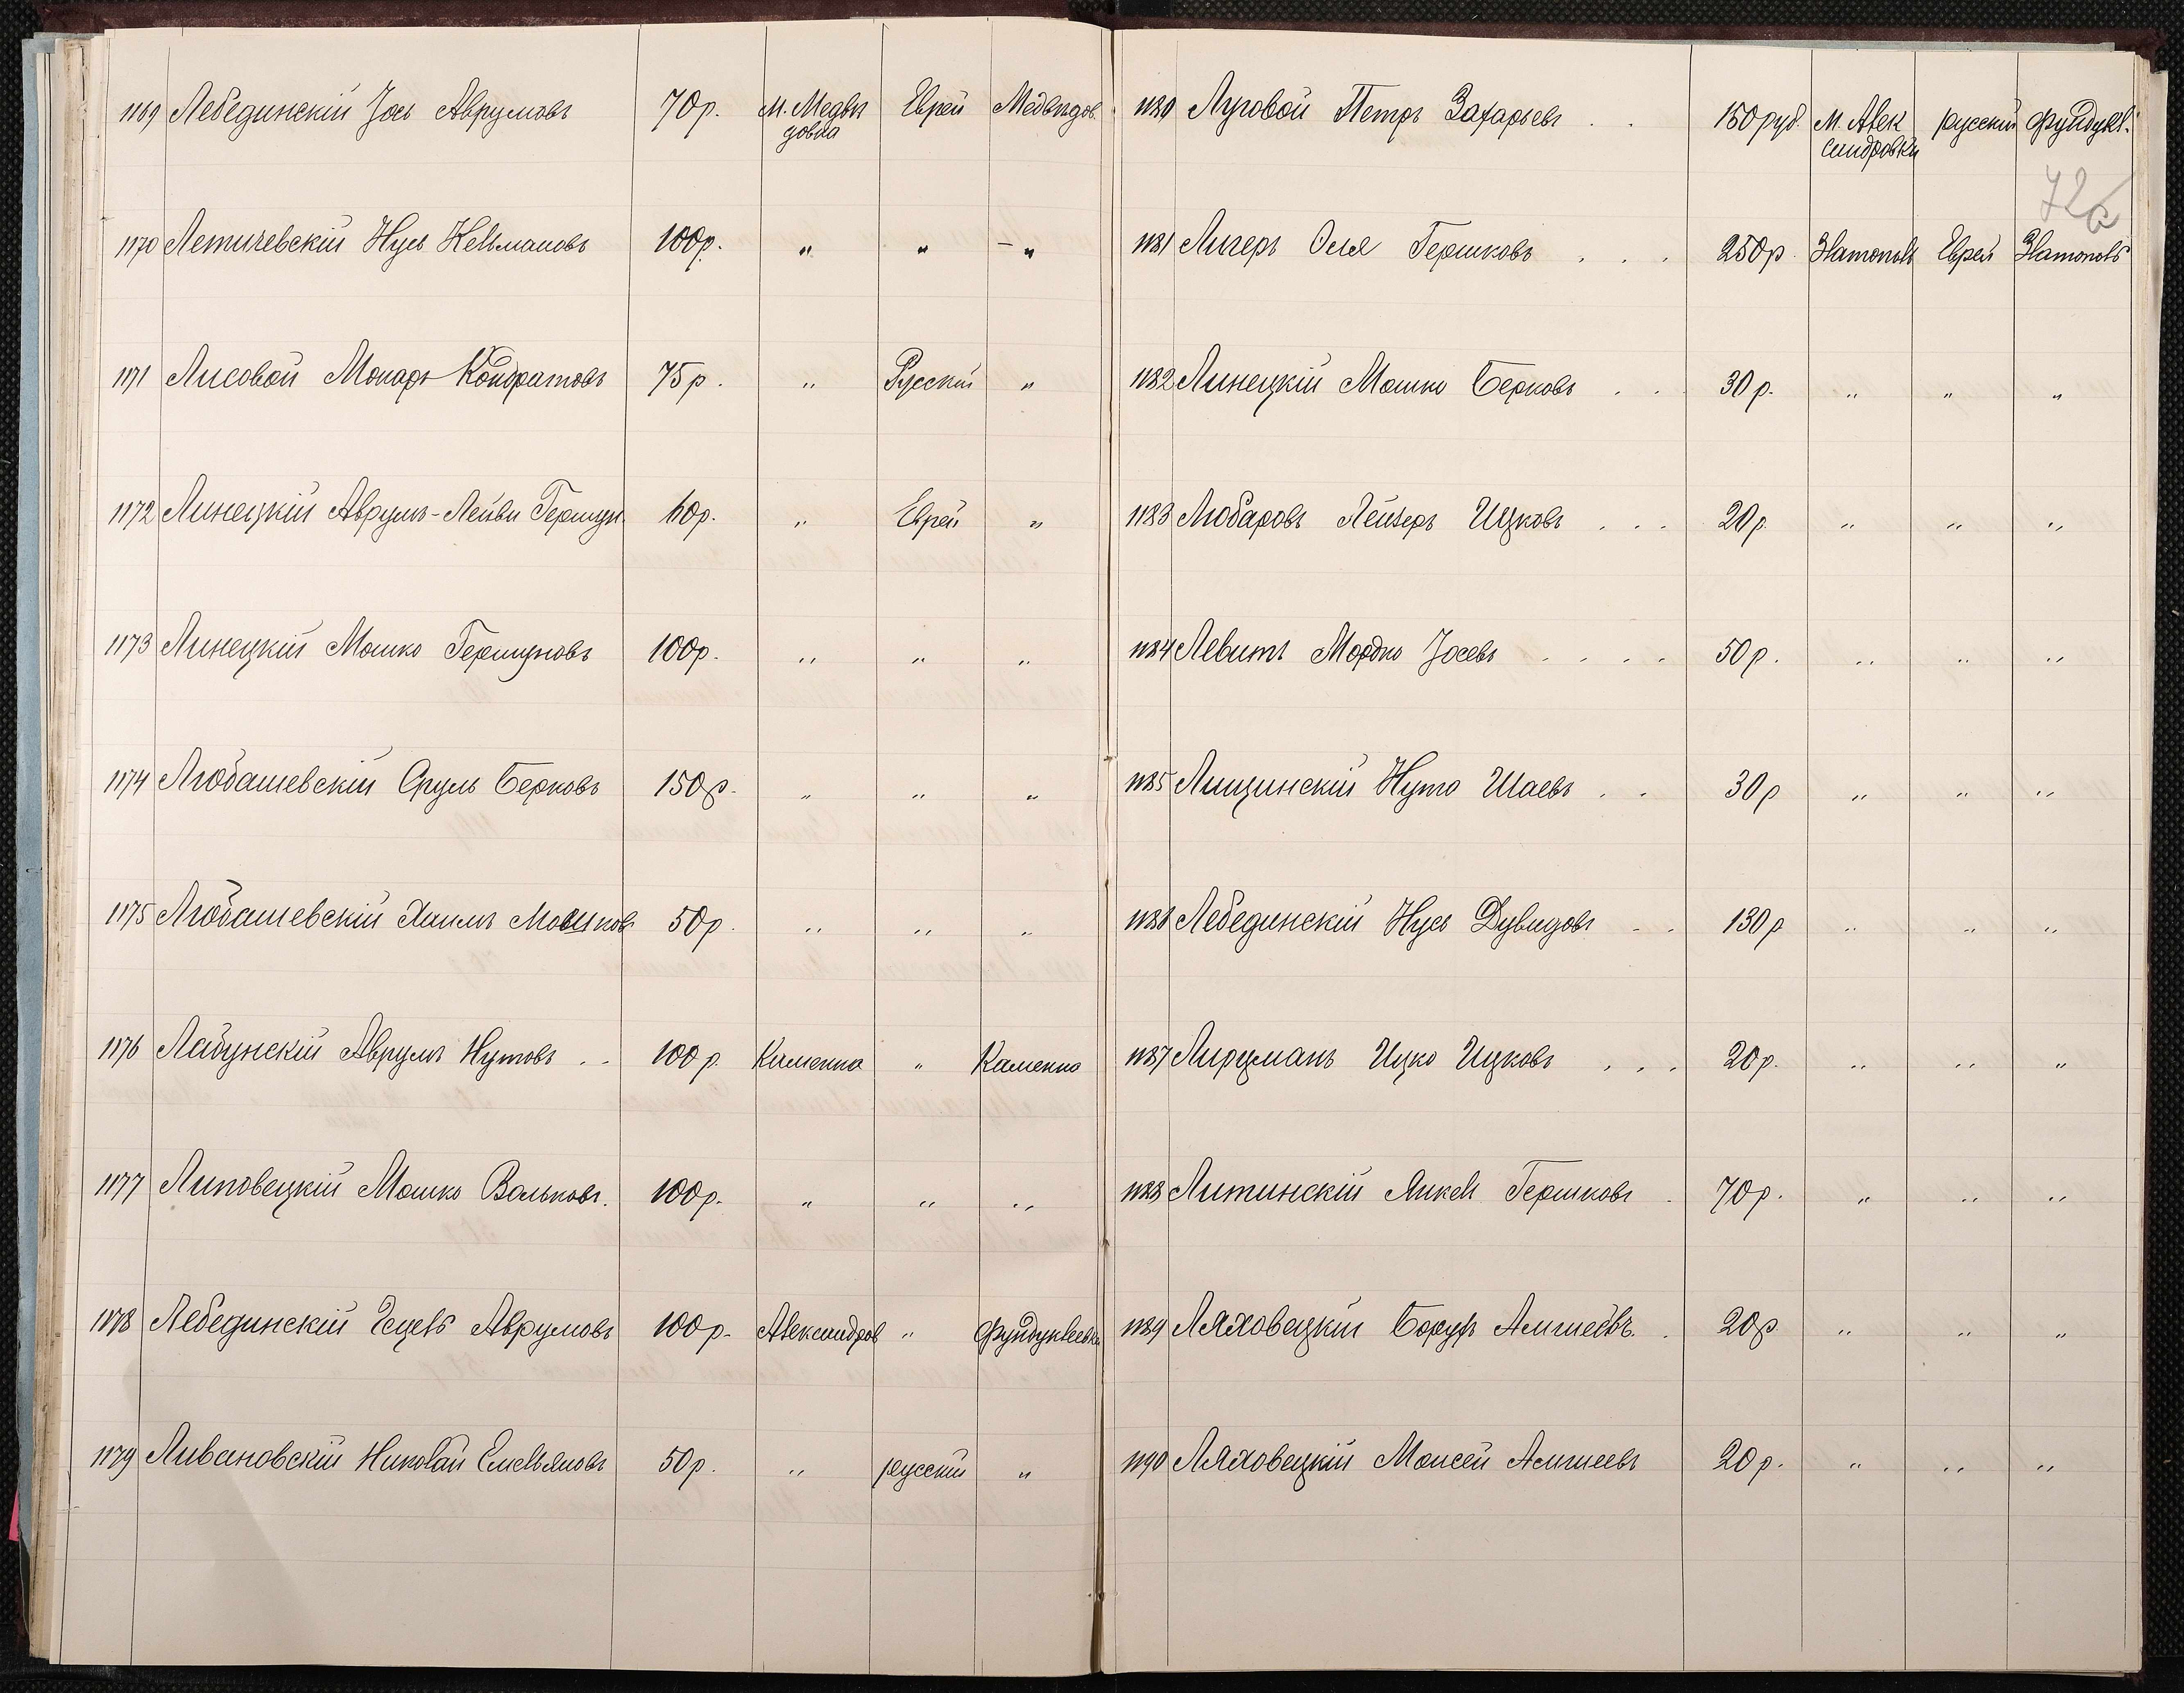 1169 Лебединскій Іось Аврумовъ 70р. М. Медвѣ Еврей Медвѣдов.
довка
1170 Летичевскій Нусь Кельмановъ 100р. " " – "
1171 Лисовой Макаръ Кондратовъ 75р. " Русскій "
1172 Линецкій Аврумъ-Лейви Гершун. 60р. " Еврей "
1173 Линецкій Мошко Гершуновъ 100р. " " "
1174 Любашевскій Сруль Берковъ 150р. " " "
1175 Любашевскій Хаимъ Мошков 50р. " " "
1176 Лабунскій Аврумъ Нутовъ . . 100р. Каменка " Каменка
1177 Липовецкій Мошко Вольковъ. 100р. " " "
1178 Лебединскій Ецель Аврумовъ 100р. Александров " Фундуклеевка
1179 Ливановскій Николай Емельяновъ 50р. " русскій "
1180 Луговой Петръ Захарьевъ . . 150 руб. М. Алек русскій Фундукл.
сандровки
72
1181 Лигеръ Оля Гершковъ . . . 250р. Златополь Еврей Златополь
1182 Линецкій Мошко Берковъ . . 30р. " " "
1183 Любаровъ Лейзеръ Ицковъ . . . 20р. " " "
1184 Левитъ Мордко Іосевъ . . . . 50р. " " "
1185 Лищинскій Нута Шаевъ . . 30р " " "
1186 Лебединскій Нусь Дувидовъ . . 130р " " "
1187 Лирцманъ Ицко Ицковъ . . . 20р. " " "
1188 Литинскій Янкель Гершковъ . 70р. " " "
1189 Ляховецкій Борухъ Алтшеевъ. . 20р " " "
1190 Ляховецкій Моисей Алтшеевъ 20р. " " "